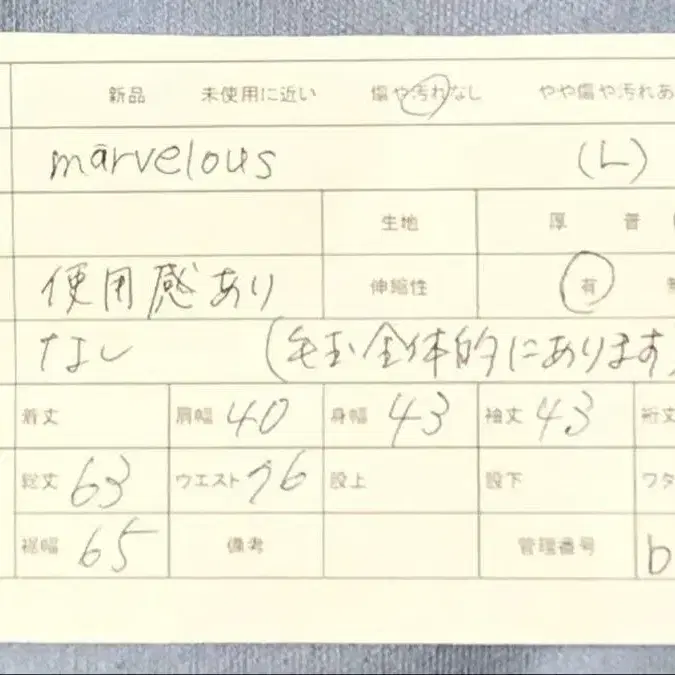 新品 未使用に近い 傷や汚れなし やや傷や汚れあ
marvelous (L)
生地 厚 普
使用感あり 伸縮性 有
なし (毛玉全体的にあります)
着丈 肩幅 40 身幅 43 袖丈 43 裄丈
総丈 63 ウエスト 76 股上 股下 ワタ
裾幅 65 備考 管理番号 b